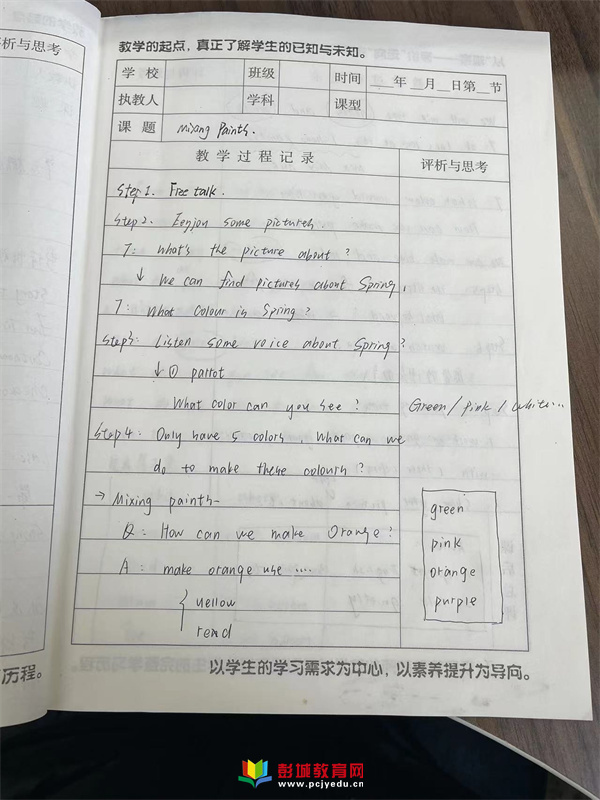 评析与思考
教学的起点，真正了解学生的已知与未知。
学校 班级 时间 __年__月__日第__节
执教人 学科 课型
课题 Mixang Paints.
教学过程记录 评析与思考
Step 1. Free talk.
Step 2. Eenjoy some pictures
T: What's the picture about ?
↓ We can find pictures about Spring.
T: What Colour is Spring?
Step3: Listen some voice about Spring?
↓ ① parrot
What color can you see ? Green / pink / white...
Step 4: Only have 5 colors, What can we
do to make these colours ?
→ Mixing paints-
Q: How can we make Orange?
A: make orange use ....
{ yellow
read
green
pink
orange
purple
历程。
以学生的学习需求为中心，以素养提升为导向。
彭城教育网
www.pcjyedu.cn